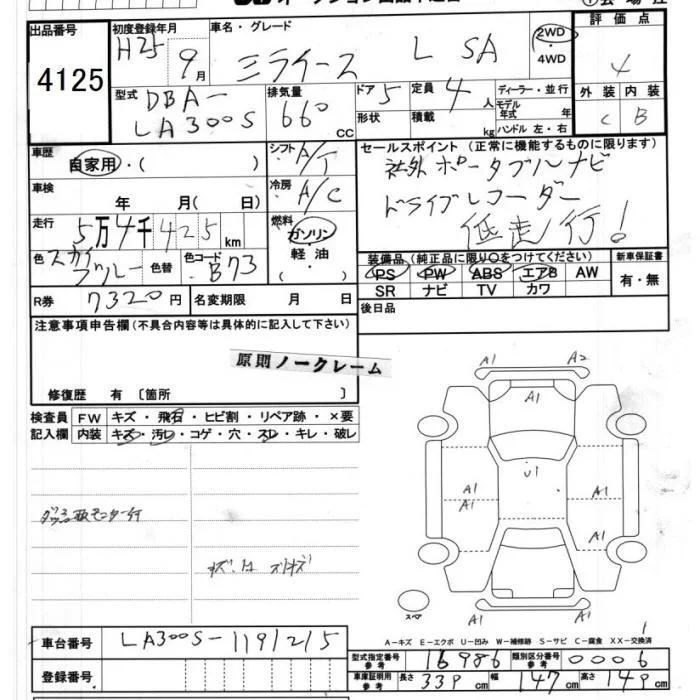 出品番号 初度登録年月 車名・グレード 2WD 評価点
4125 H25 9月 ミライース L SA ・4WD 4
型式 DBA- 排気量 ドア 5 定員 4人 ディーラー・並行 外装 内装
LA300S 660 CC 形状 積載 kg モデル年式 年 C B
ハンドル 左・右
車歴 自家用・( ) シフト A/T セールスポイント (正常に機能するものに限ります)
車検 年 月( 日) 冷房 A/C 社外 ポータブルナビ
走行 5万4千425km 燃料 ガソリン・軽油・( ) ドライブレコーダー
低走行!
色 スカイブルー 色替 色コード B73 装備品 (純正品に限り○をつけてください) 新車保証書
PS PW ABS エアB AW 有・無
SR ナビ TV カワ
R券 7320円 名変期限 月 日 後日品
注意事項申告欄 (不具合内容等は具体的に記入して下さい)
原則ノークレーム
修復歴 有 〔箇所 〕
検査員 FW キズ・飛石・ヒビ割・リペア跡・×要
記入欄 内装 キズ・汚レ・コゲ・穴・スレ・キレ・破レ
A1 A2
A1
U1
A1 A1 A1
A1
A1 A1
スペア
A-キズ E-エクボ U-凹み W-補修跡 S-サビ C-腐食 XX-交換済
車台番号 LA300S-1191215
型式指定番号 参考 16986 類別区分番号 参考 0006
登録番号 車庫証明用 参考 長さ 339 cm 幅 147 cm 高さ 149 cm